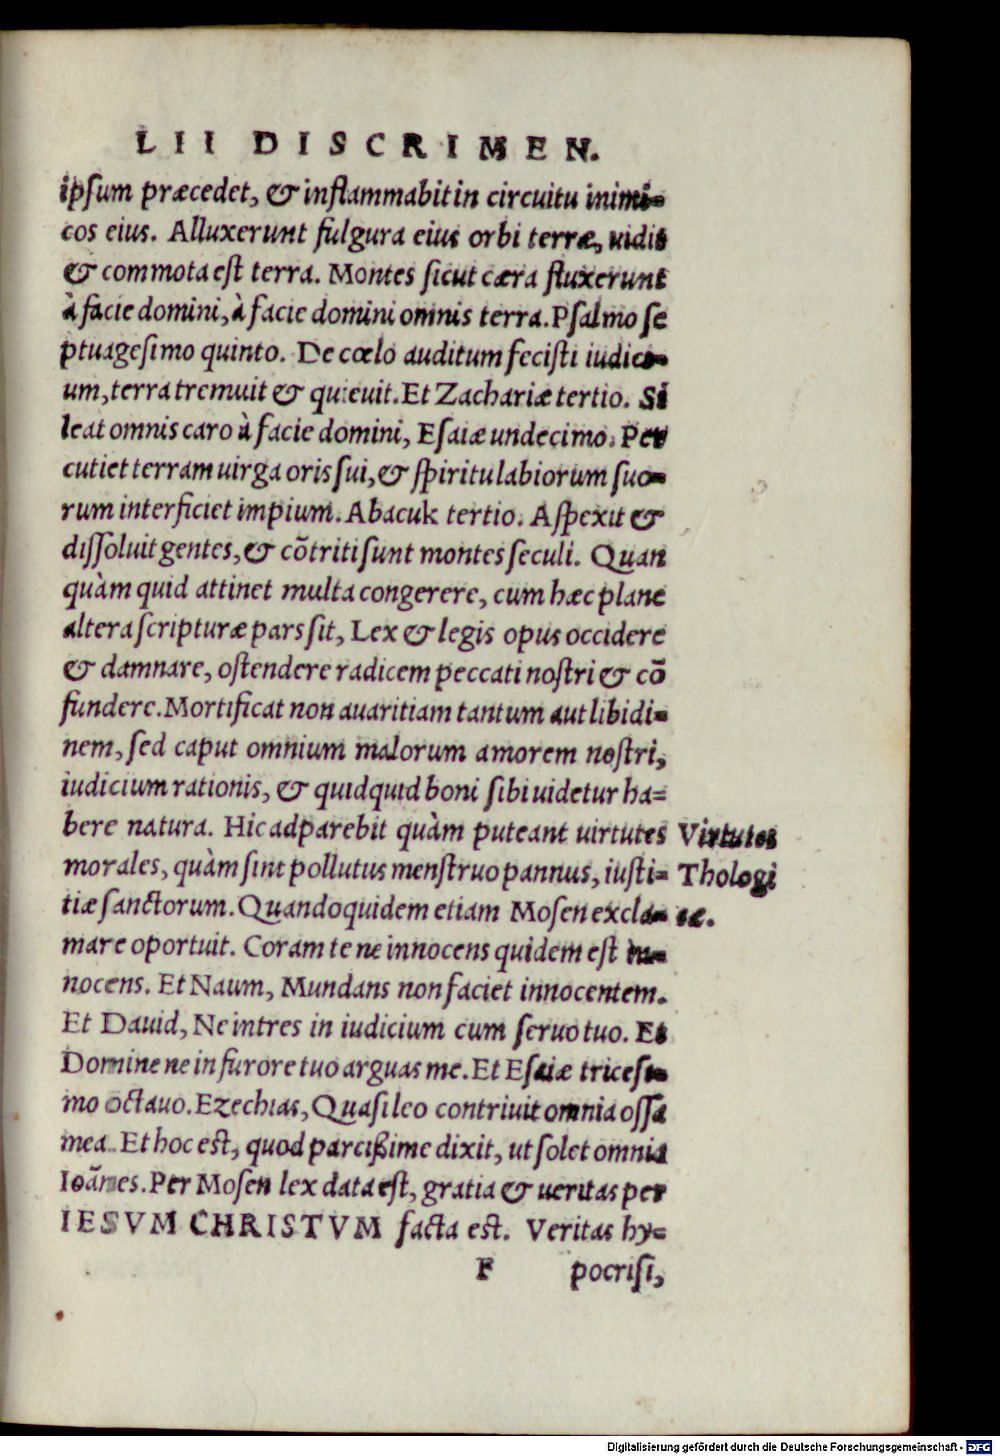 LII DISCRIMEN.
ipſum præcedet, & inflammabit in circuitu inimi=
cos eius. Alluxerunt fulgura eius orbi terræ, uidit
& commota eſt terra. Montes ſicut cæra fluxerunt
à facie domini, à facie domini omnis terra. Pſalmo ſe
ptuageſimo quinto. De cœlo auditum feciſti iudici=
um, terra tremuit & quieuit. Et Zachariæ tertio. Si
leat omnis caro à facie domini, Eſaiæ undecimo. Per
cutiet terram uirga oris ſui, & ſpiritu labiorum ſuo=
rum interficiet impium. Abacuk tertio. Aſpexit &
diſſoluit gentes, & cõtriti ſunt montes ſeculi. Quan
quàm quid attinet multa congerere, cum hæc plane
altera ſcripturæ pars ſit, Lex & legis opus occidere
& damnare, oſtendere radicem peccati noſtri & cõ
fundere. Mortificat non auaritiam tantum aut libidi=
nem, ſed caput omnium malorum amorem noſtri,
iudicium rationis, & quidquid boni ſibi uidetur ha=
bere natura. Hic adparebit quàm puteant uirtutes
morales, quàm ſint pollutus menſtruo pannus, iuſti=
tiæ ſanctorum. Quandoquidem etiam Moſen excla=
mare oportuit. Coram te ne innocens quidem eſt in=
nocens. Et Naum, Mundans non faciet innocentem.
Et Dauid, Ne intres in iudicium cum ſeruo tuo. Et
Domine ne in furore tuo arguas me. Et Eſaiæ triceſi=
mo octauo. Ezechias, Quaſi leo contriuit omnia oſſa
mea. Et hoc eſt, quod parcißime dixit, ut ſolet omnia
Ioãnes. Per Moſen lex data eſt, gratia & ueritas per
IESVM CHRISTVM facta eſt. Veritas hy=
F pocriſi,
Virtutes
Thologi
cæ.
Digitalisierung gefördert durch die Deutsche Forschungsgemeinschaft - DFG